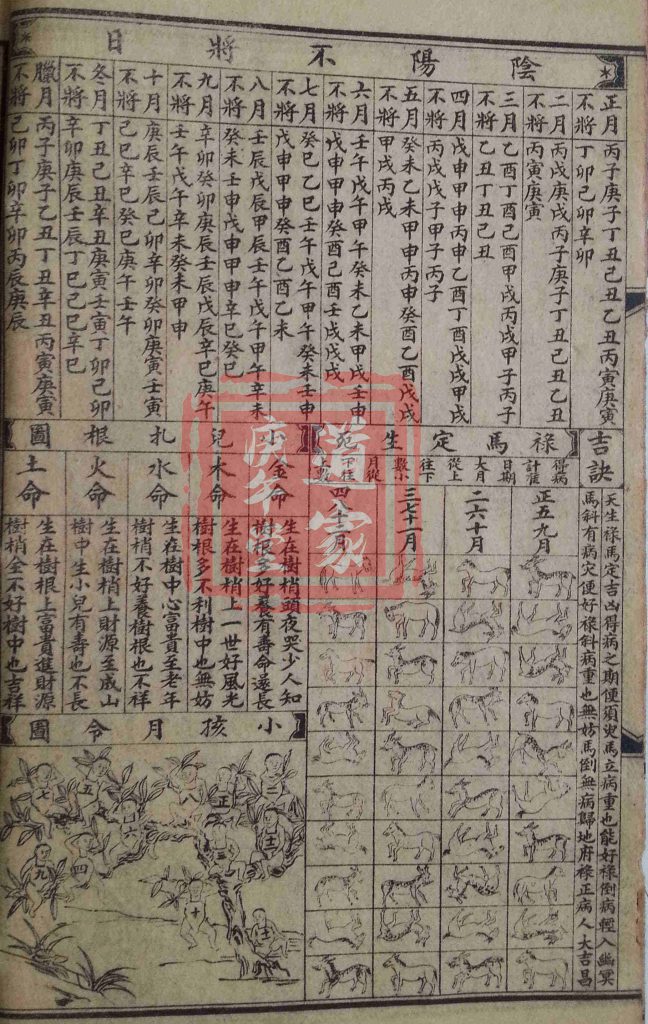 陰陽不將日
正月不將
丙子庚子丁丑己丑乙丑丙寅庚寅
丁卯己卯辛卯
二月不將
丙戌庚戌丙子庚子丁丑己丑乙丑
丙寅庚寅
三月不將
乙酉丁酉己酉甲戌丙戌甲子丙子
乙丑丁丑己丑
四月不將
戊申甲申丙申乙酉丁酉戊戌甲戌
丙戌戊子甲子丙子
五月不將
癸未乙未甲申丙申癸酉乙酉戊戌
甲戌丙戌
六月不將
壬午戊午甲午癸未乙未甲戌壬申
戊申甲申癸酉己酉壬戌戊戌
七月不將
癸巳乙巳壬午戊午甲午癸未壬申
戊申甲申癸酉乙酉乙未
八月不將
壬辰戊辰甲辰壬午戊午甲午辛未
癸未壬申戊申甲申辛巳癸巳
九月不將
辛卯癸卯庚辰壬辰戊辰辛巳庚午
壬午戊午辛未癸未甲申
十月不將
庚辰壬辰己卯辛卯癸卯庚寅壬寅
己巳辛巳癸巳庚午壬午
冬月不將
丁丑己丑辛丑庚寅壬寅丁卯己卯
辛卯庚辰壬辰丁巳己巳辛巳
臘月不將
丙子庚子乙丑丁丑辛丑丙寅庚寅
己卯丁卯辛卯丙辰庚辰
吉訣
天生祿馬定吉凶得病之期便須叟馬立病重也能好祿倒病輕入幽冥
馬斜有病灾便好祿斜病重也無妨馬倒無病歸地府祿正病人大吉昌
祿馬定生死
得病
計准
日期
大月
從上
往下
數小
月從
下往
上數
正五九月
二六十月
三七十一月
四八十二月
小兒扎根圖
金命
生在樹梢頭夜哭少人知
樹根多好養有壽命還長
木命
生在樹梢上一世好風光
樹根多不利樹中也無妨
水命
生在樹中心富貴至老年
樹梢不好養樹根也不祥
火命
生在樹梢上財源至成山
樹中生小兒有壽也不長
土命
生在樹根上富貴進財源
樹梢全不好樹中也吉祥
小孩月令圖
七
五
八
正
六
四
九
十
道家
慶年堂